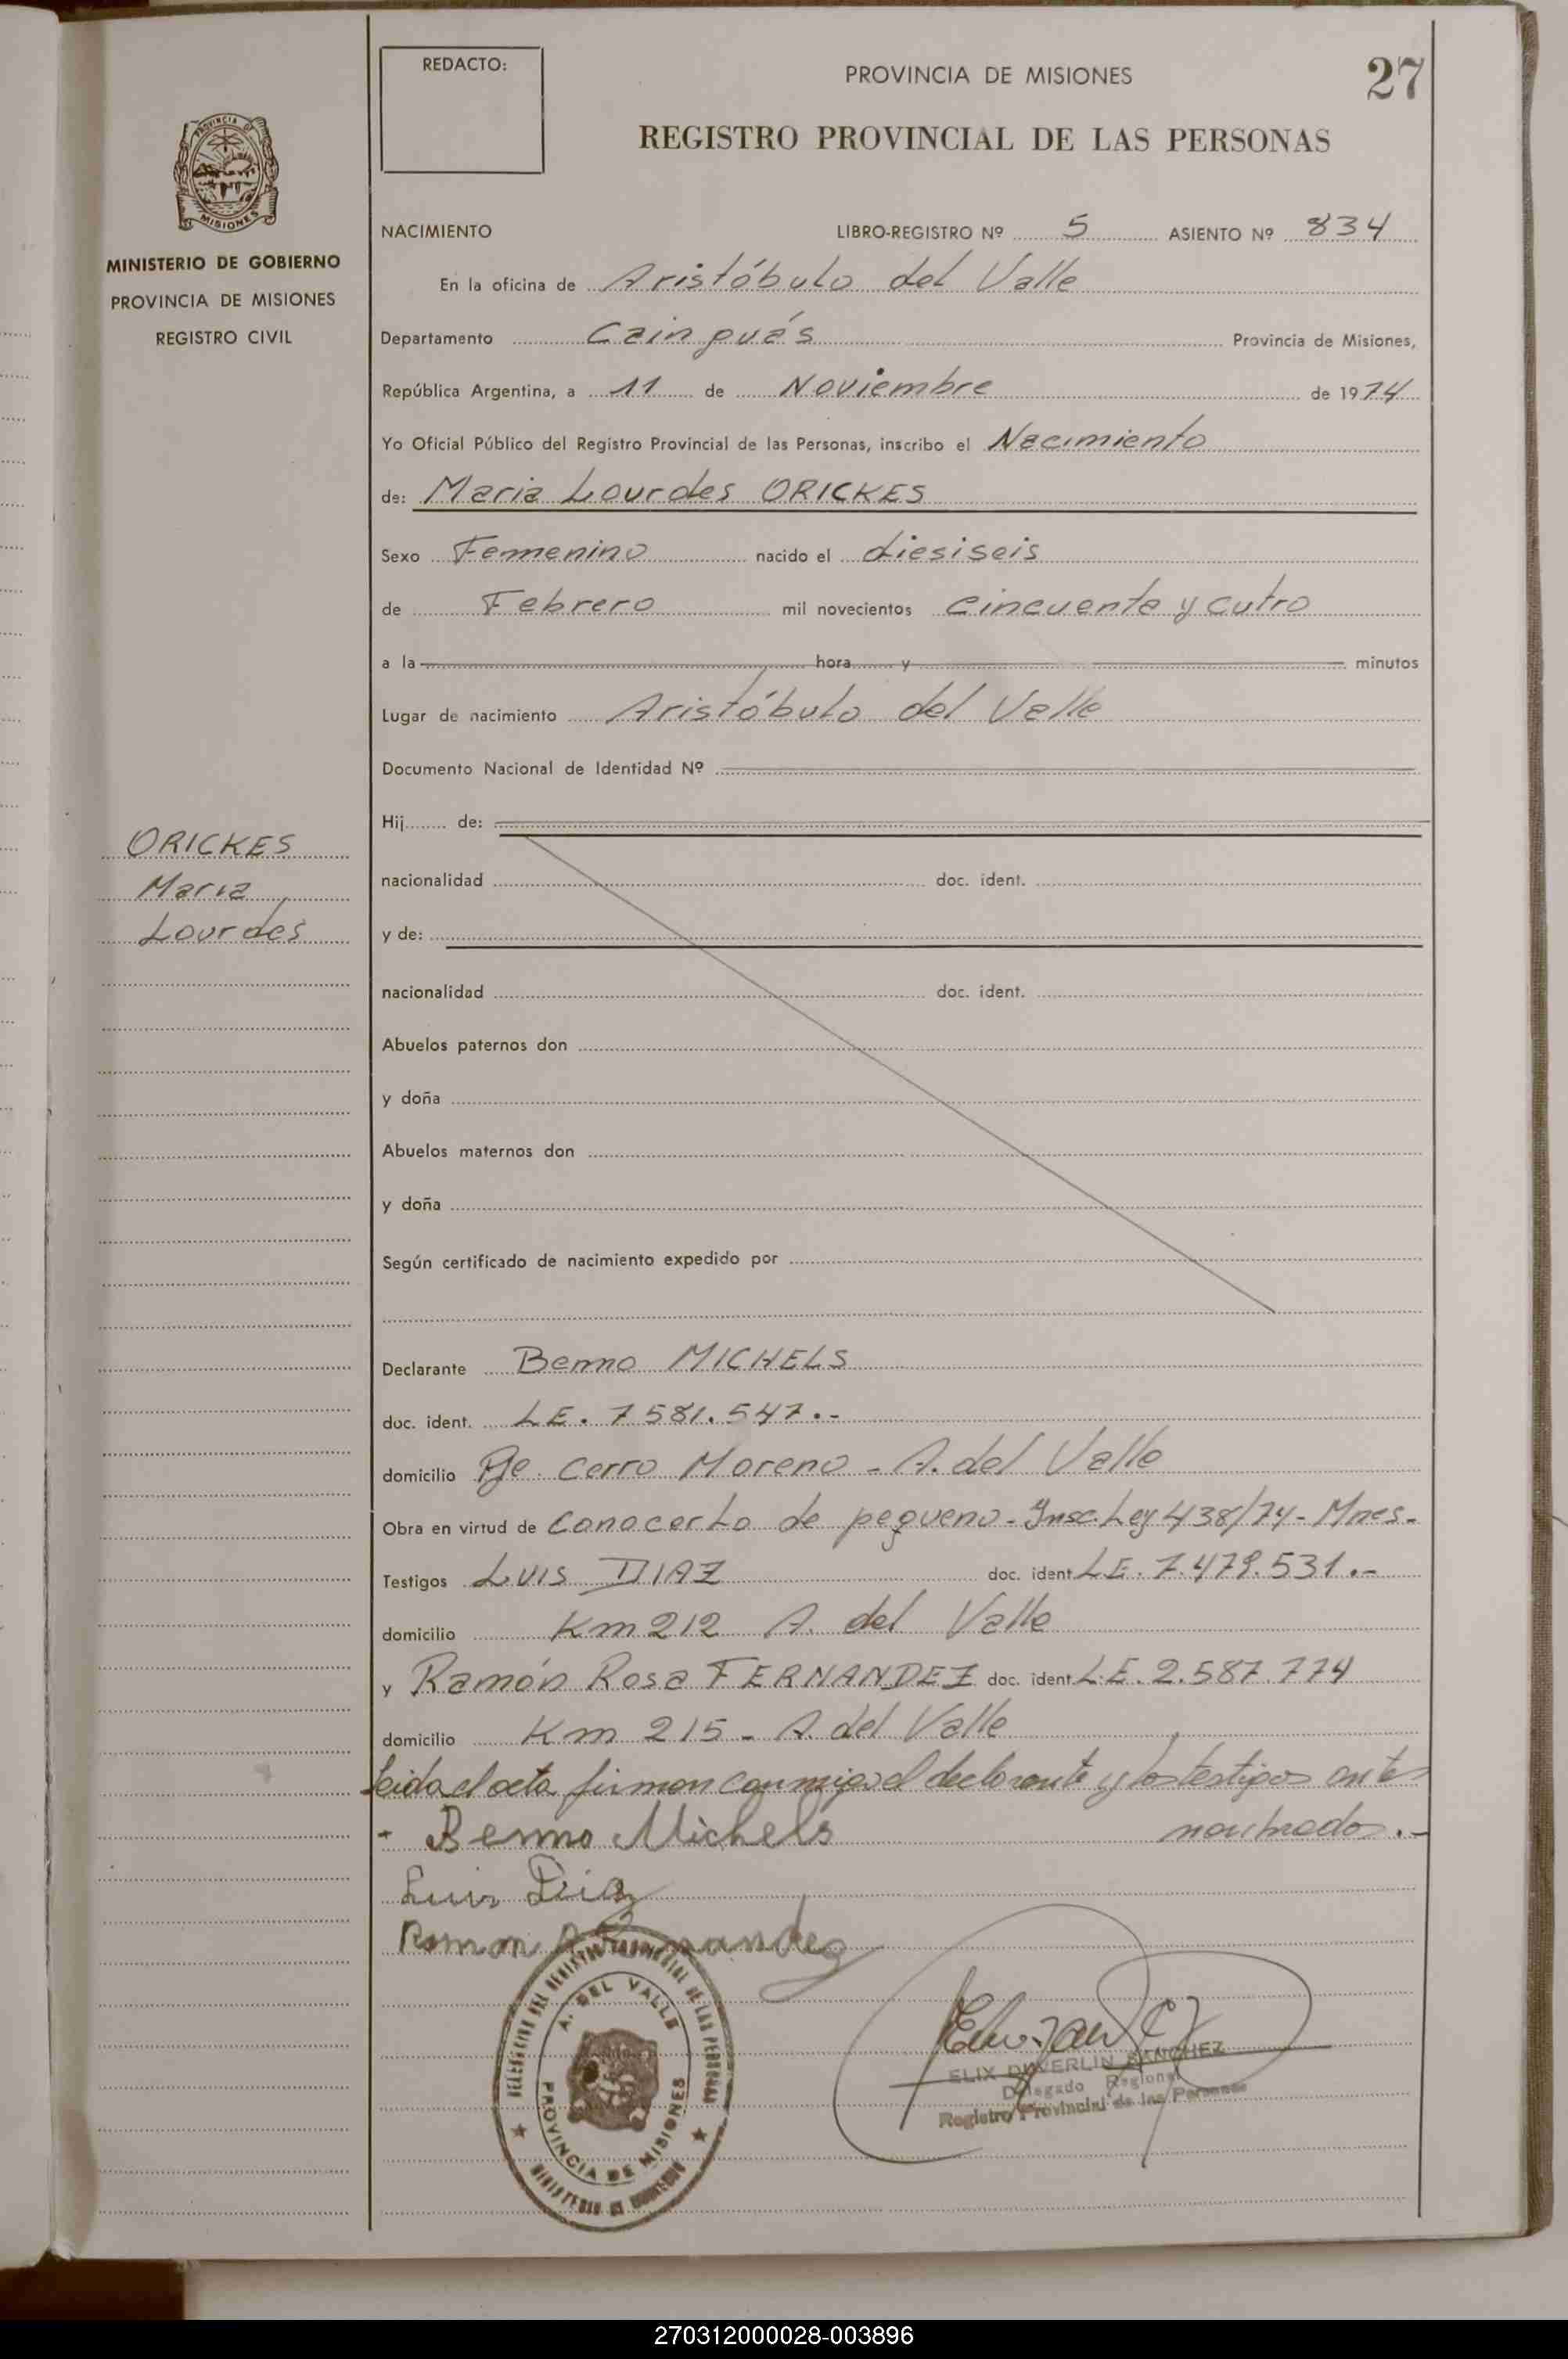 REDACTO:
PROVINCIA DE MISIONES
27
REGISTRO PROVINCIAL DE LAS PERSONAS
PROVINCIA DE
MISIONES
MINISTERIO DE GOBIERNO
PROVINCIA DE MISIONES
REGISTRO CIVIL
NACIMIENTO LIBRO-REGISTRO Nº 5 ASIENTO Nº 834
En la oficina de Aristóbulo del Valle
Departamento Cainguás Provincia de Misiones,
República Argentina, a 11 de Noviembre de 1974
Yo Oficial Público del Registro Provincial de las Personas, inscribo el Nacimiento
de: Maria Lourdes ORICKES
Sexo Femenino nacido el diesiseis
de Febrero mil novecientos cincuenta y cutro
a la hora y minutos
Lugar de nacimiento Aristóbulo del Valle
Documento Nacional de Identidad Nº
Hij de:
ORICKES
Maria
Lourdes
nacionalidad doc. ident.
y de:
nacionalidad doc. ident.
Abuelos paternos don
y doña
Abuelos maternos don
y doña
Según certificado de nacimiento expedido por
Declarante Benno MICHELS
doc. ident. LE. 7581.547.-
domicilio Pje. Cerro Moreno - A. del Valle
Obra en virtud de conocerlo de pequeno - Insc. Ley 438/74 - Mnes.
Testigos LUIS DIAZ doc. ident LE. 7.479.531.-
domicilio Km 212 A. del Valle
y Ramón Rosa FERNANDEZ doc. ident L.E. 2.587.774
domicilio Km 215 - A. del Valle
Leida el acta firman conmigo el declarante y los testigos ante
nombrados.-
Benno Michels
Luis Diaz
Ramon Fernandez
DELEGACION DEL REGISTRO PROVINCIAL DE LAS PERSONAS
A. DEL VALLE
PROVINCIA DE MISIONES
MINISTERIO DE GOBIERNO
ELIX DUVERLIN SANCHEZ
Delegado Regional
Registro Provincial de las Personas
270312000028-003896